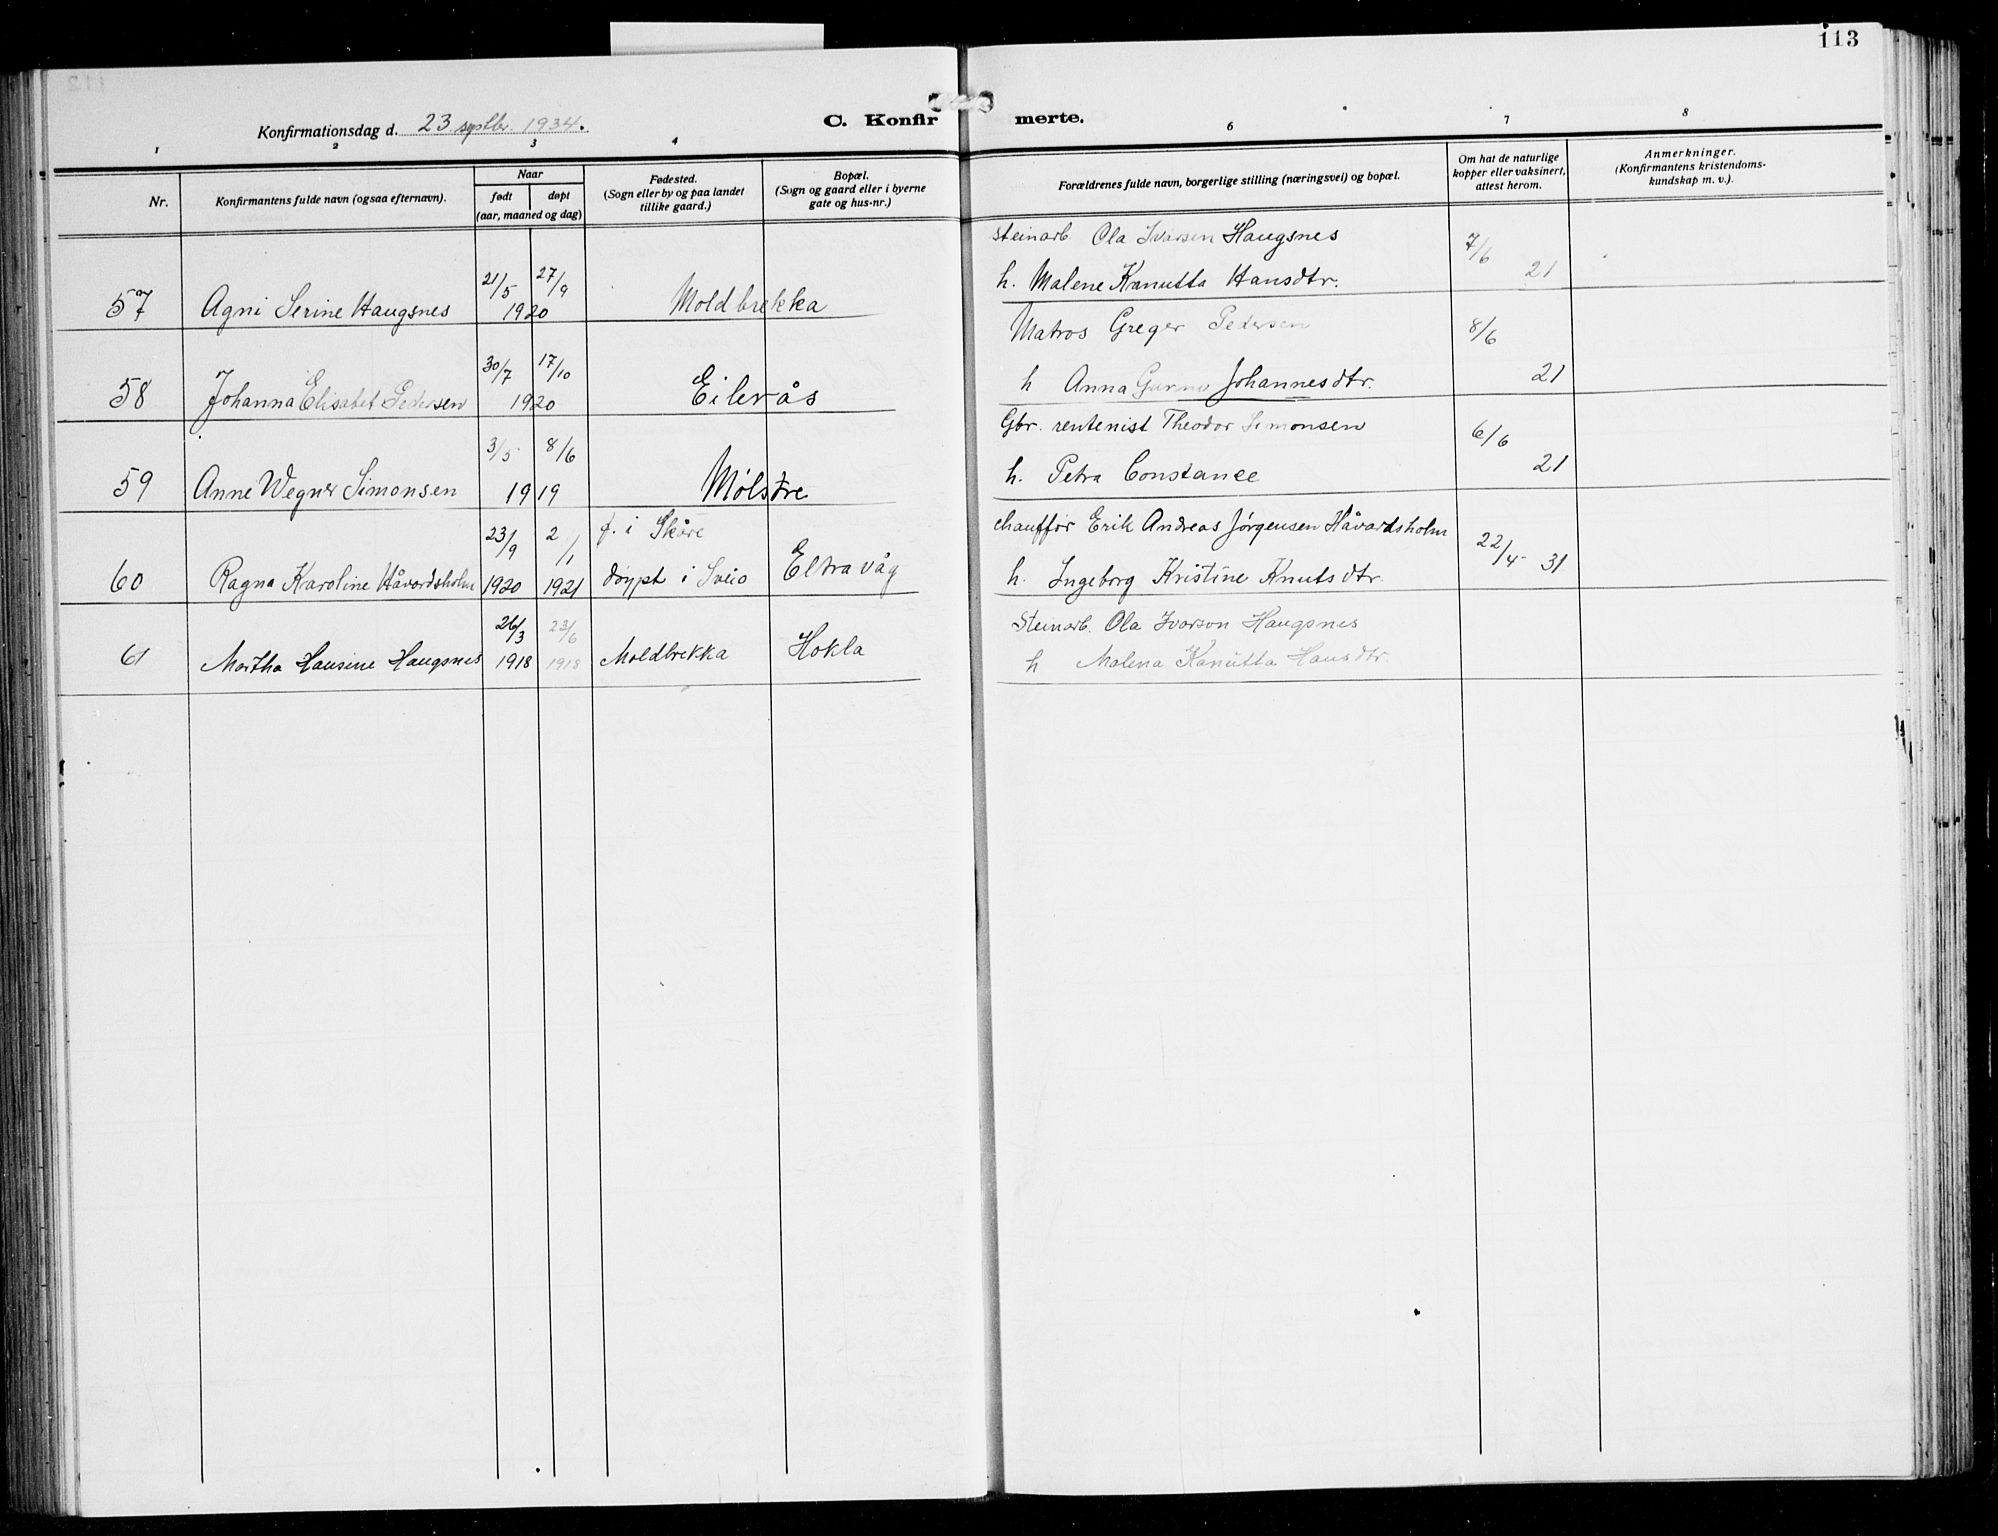 113
Konfirmationsdag d. 23 septbr. 1934.
C. Konfirmerte.
1 2 3 4 6 7 8
Nr.
Konfirmantens fulde navn (ogsaa efternavn).
Naar
født døpt
(aar, maaned og dag)
Fødested.
(Sogn eller by og paa landet
tillike gaard.)
Bopæl.
(Sogn og gaard eller i byerne
gate og hus-nr.)
Forældrenes fulde navn, borgerlige stilling (næringsvei) og bopæl.
Om hat de naturlige
kopper eller vaksinert,
attest herom.
Anmerkninger.
(Konfirmantens kristendoms-
kundskap m. v.).
steinarb. Ola Ivarsen Haugsnes 7/6
21/5 27/9 h. Malene Kanutta Hansdtr. 21
57 Agni Serine Haugsnes 1920 Moldbrekka
Matros Greger Pedersen 8/6
30/7 17/10 h Anna Johannesdtr. 21
58 Johanna Elisabet Pedersen 1920 Eilerås
Gbr. rentenist Theodor Simonsen 6/6
3/5 8/6 h. Petra Constance 21
59 Anne Wegner Simonsen 1919 Mølstre
23/9 2/1 f. i Skåre chauffør Erik Andreas Jørgensen Håvardsholm 22/4 31
60 Ragna Karoline Håvardsholm 1920 1921 døypt i Sveio Eltravåg h. Ingeborg Kristine Knutsdtr.
26/3 23/6 Steinarb. Ola Ivarson Haugsnes
61 Martha Hansine Haugsnes 1918 1918 Moldbrekka Hokla h Malena Kanutta Hansdtr.